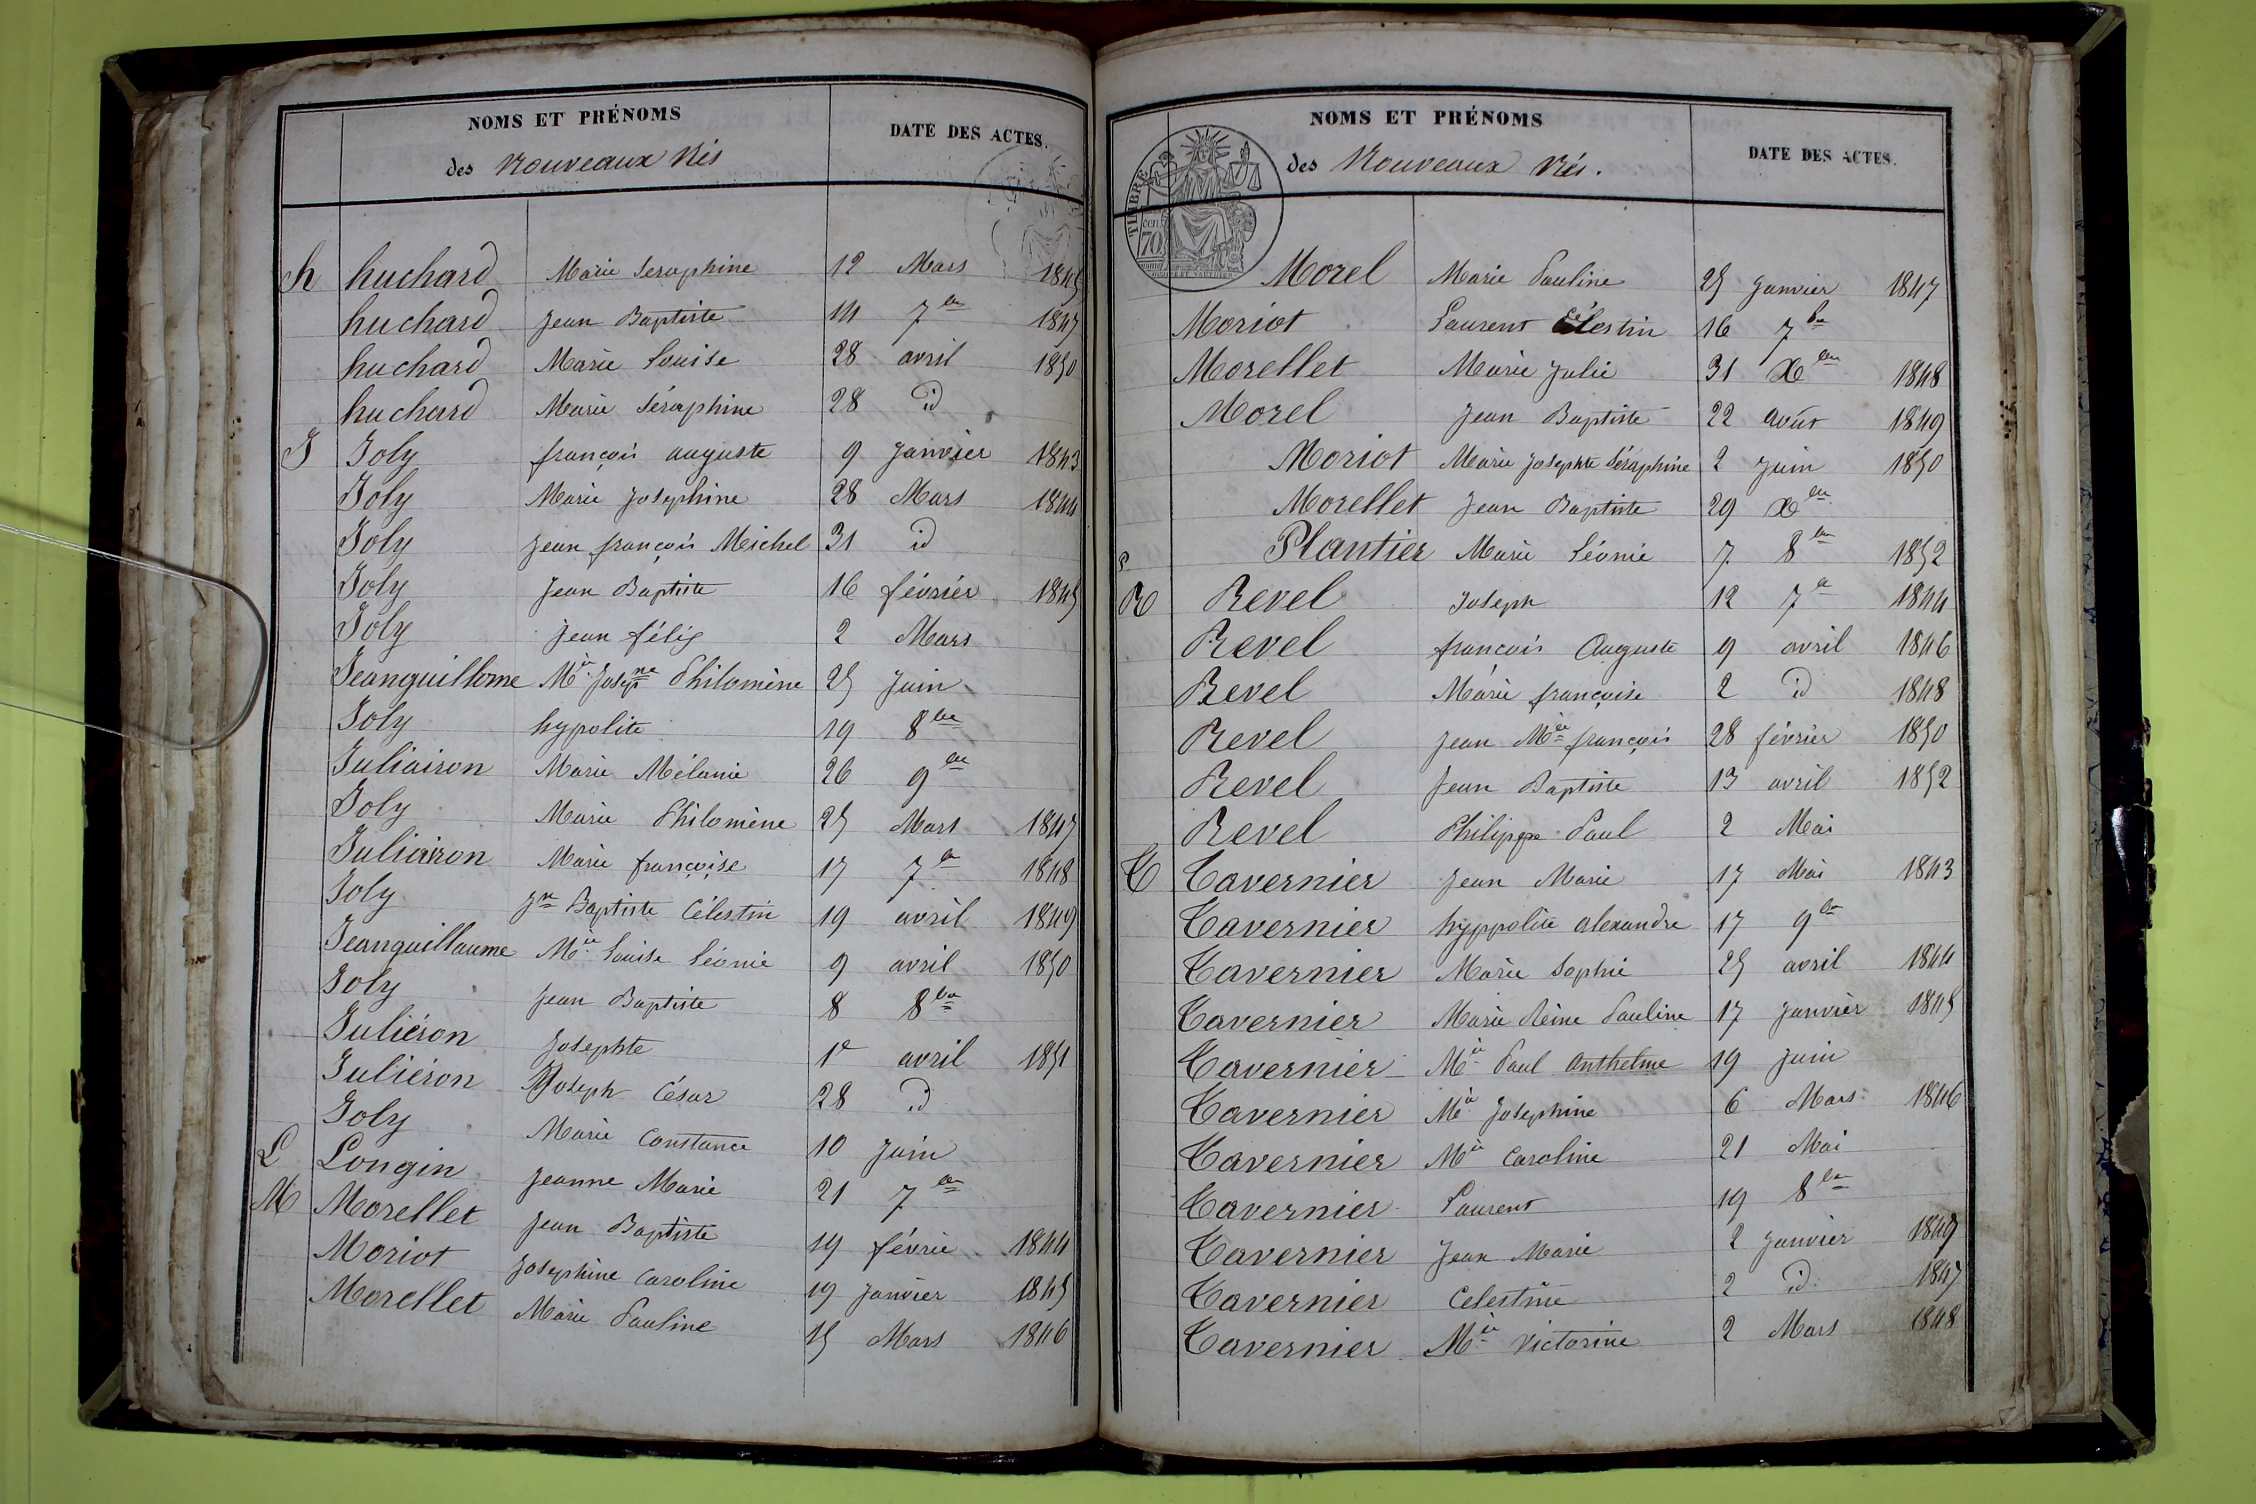 NOMS ET PRÉNOMS
DATE DES ACTES.
des Nouveaux Nés
h huchard Marie Seraphine 12 Mars 1845
huchard Jean Baptiste 14 7bre 1847
huchard Marie Louise 28 avril 1850
huchard Marie Séraphine 28 id
J Joly françois auguste 9 Janvier 1843
Joly Marie Josephine 28 Mars 1844
Joly Jean françois Meichel 31 id
Joly Jean Baptiste 16 février 1845
Joly Jean félix 2 Mars
Jeanguillome Mie Josepne Philomène 25 Juin
Joly hypolite 19 8bre
Juliairon Marie Mélanie 26 9bre
Joly Marie Philomène 25 Mars 1847
Juliairon Marie françoise 17 7bre 1848
Joly Jn Baptiste Célestin 19 avril 1849
Jeanguillaume Mie Louise Léonie 9 avril 1850
Joly Jean Baptiste 8 8bre
Juliéron Josephte 1er avril 1851
Juliéron Joseph César 28 id
Joly Marie Constance 10 Juin
L Longin Jeanne Marie 21 7bre
M Morellet Jean Baptiste 19 févrie 1844
Moriot Josephine Caroline 19 Janvier 1845
Morellet Marie Pauline 15 Mars 1846
NOMS ET PRÉNOMS
DATE DES ACTES.
des Nouveaux Nés.
TIMBRE
70
Morel Marie Pauline 25 Janvier 1847
Moriot Laurent Célestin 16 7bre
Morellet Marie Julie 31 Xbre 1848
Morel Jean Baptiste 22 août 1849
Moriot Marie Josephte Séraphine 2 Juin 1850
Morellet Jean Baptiste 29 Xbre
P Plantier Marie Léonie 7 8bre 1852
R Revel Joseph 12 7bre 1844
Revel francois Auguste 9 avril 1846
Revel Marie françoise 2 id 1848
Revel Jean Mie françois 28 février 1850
Revel Jean Baptiste 13 avril 1852
Revel Philippe Paul 2 Mai
T Tavernier Jean Marie 17 Mai 1843
Tavernier hyppolite alexandre 17 9bre
Tavernier Marie Sophie 25 avril 1844
Tavernier Marie Reine Pauline 17 Janvier 1845
Tavernier Mie Paul Anthelme 19 Juin
Tavernier Mie Josephine 6 Mars 1846
Tavernier Mie Caroline 21 Mai
Tavernier Laurent 19 8bre
Tavernier Jean Marie 2 Janvier 1849
Tavernier Celestine 2 id 1847
Tavernier Mie Victorine 2 Mars 1848